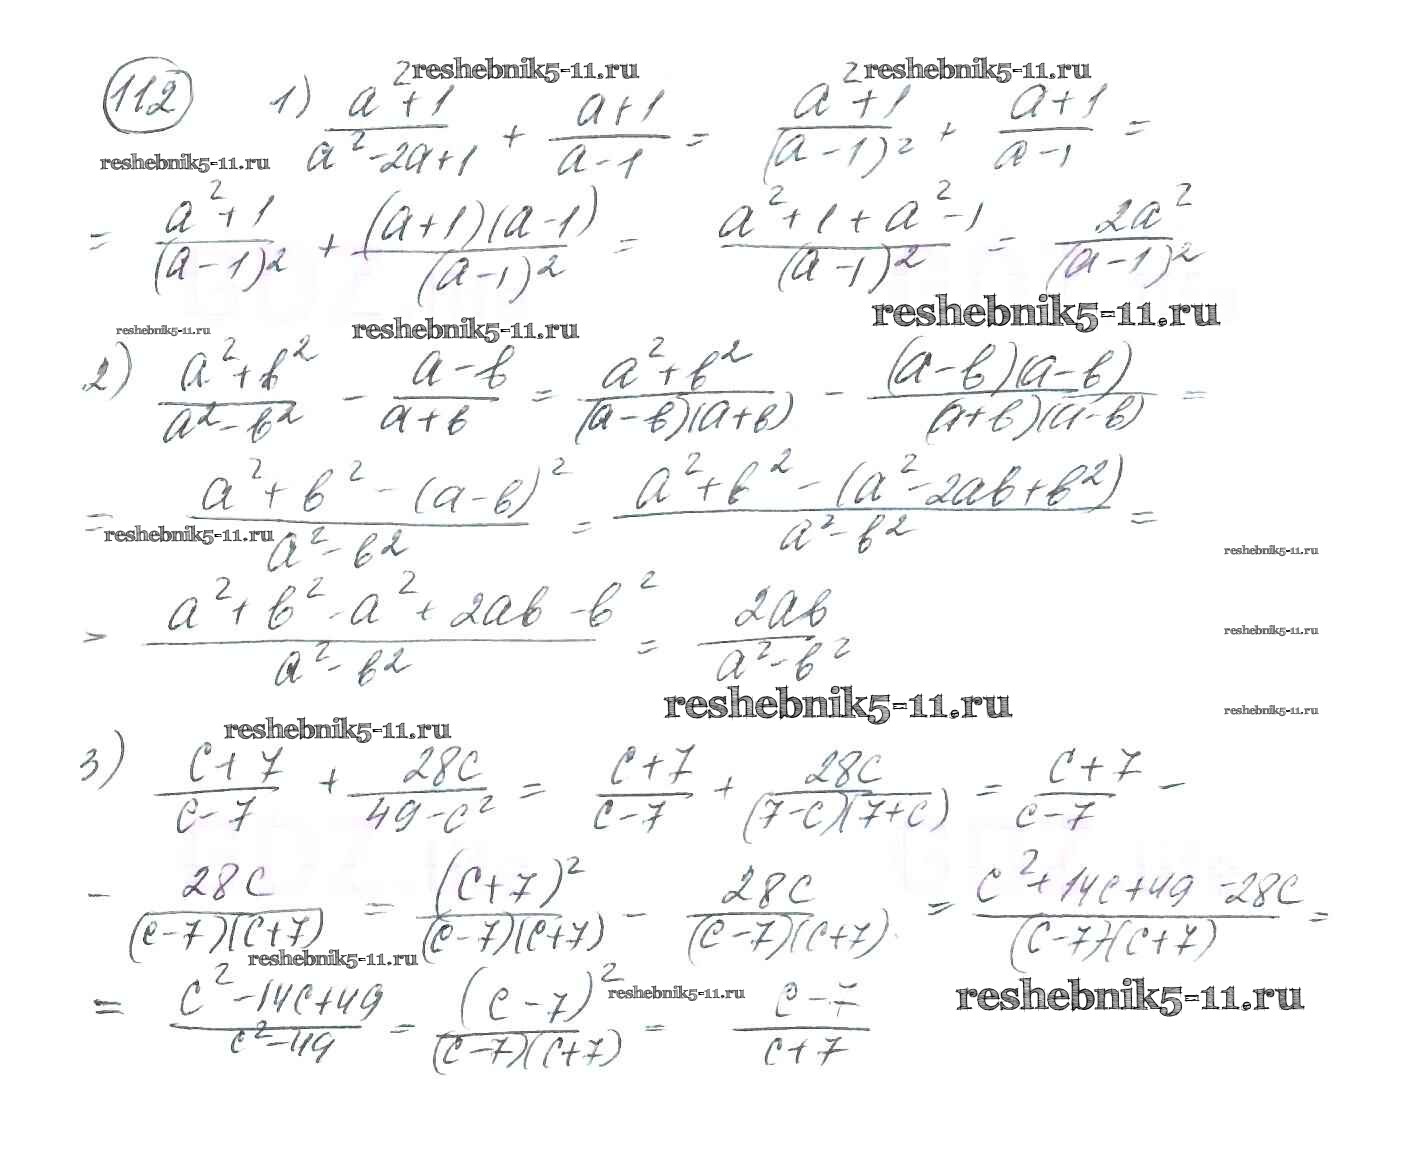 reshebnik5-11.ru reshebnik5-11.ru
112 1) (a²+1)/(a²-2a+1) + (a+1)/(a-1) = (a²+1)/(a-1)² + (a+1)/(a-1) =
reshebnik5-11.ru
= (a²+1)/(a-1)² + (a+1)(a-1)/(a-1)² = (a²+1+a²-1)/(a-1)² = 2a²/(a-1)²
reshebnik5-11.ru reshebnik5-11.ru reshebnik5-11.ru
2) (a²+в²)/(a²-в²) - (a-в)/(a+в) = (a²+в²)/((a-в)(a+в)) - (a-в)(a-в)/((a+в)(a-в)) =
= (a²+в²-(a-в)²)/(a²-в²) = (a²+в²-(a²-2aв+в²))/(a²-в²) =
reshebnik5-11.ru reshebnik5-11.ru
= (a²+в²-a²+2aв-в²)/(a²-в²) = 2aв/(a²-в²)
reshebnik5-11.ru
reshebnik5-11.ru reshebnik5-11.ru reshebnik5-11.ru
3) (c+7)/(c-7) + 28c/(49-c²) = (c+7)/(c-7) + 28c/((7-c)(7+c)) = (c+7)/(c-7) -
- 28c/((c-7)(c+7)) = (c+7)²/((c-7)(c+7)) - 28c/((c-7)(c+7)) = (c²+14c+49-28c)/((c-7)(c+7)) =
reshebnik5-11.ru reshebnik5-11.ru reshebnik5-11.ru
= (c²-14c+49)/(c²-49) = (c-7)²/((c-7)(c+7)) = (c-7)/(c+7)